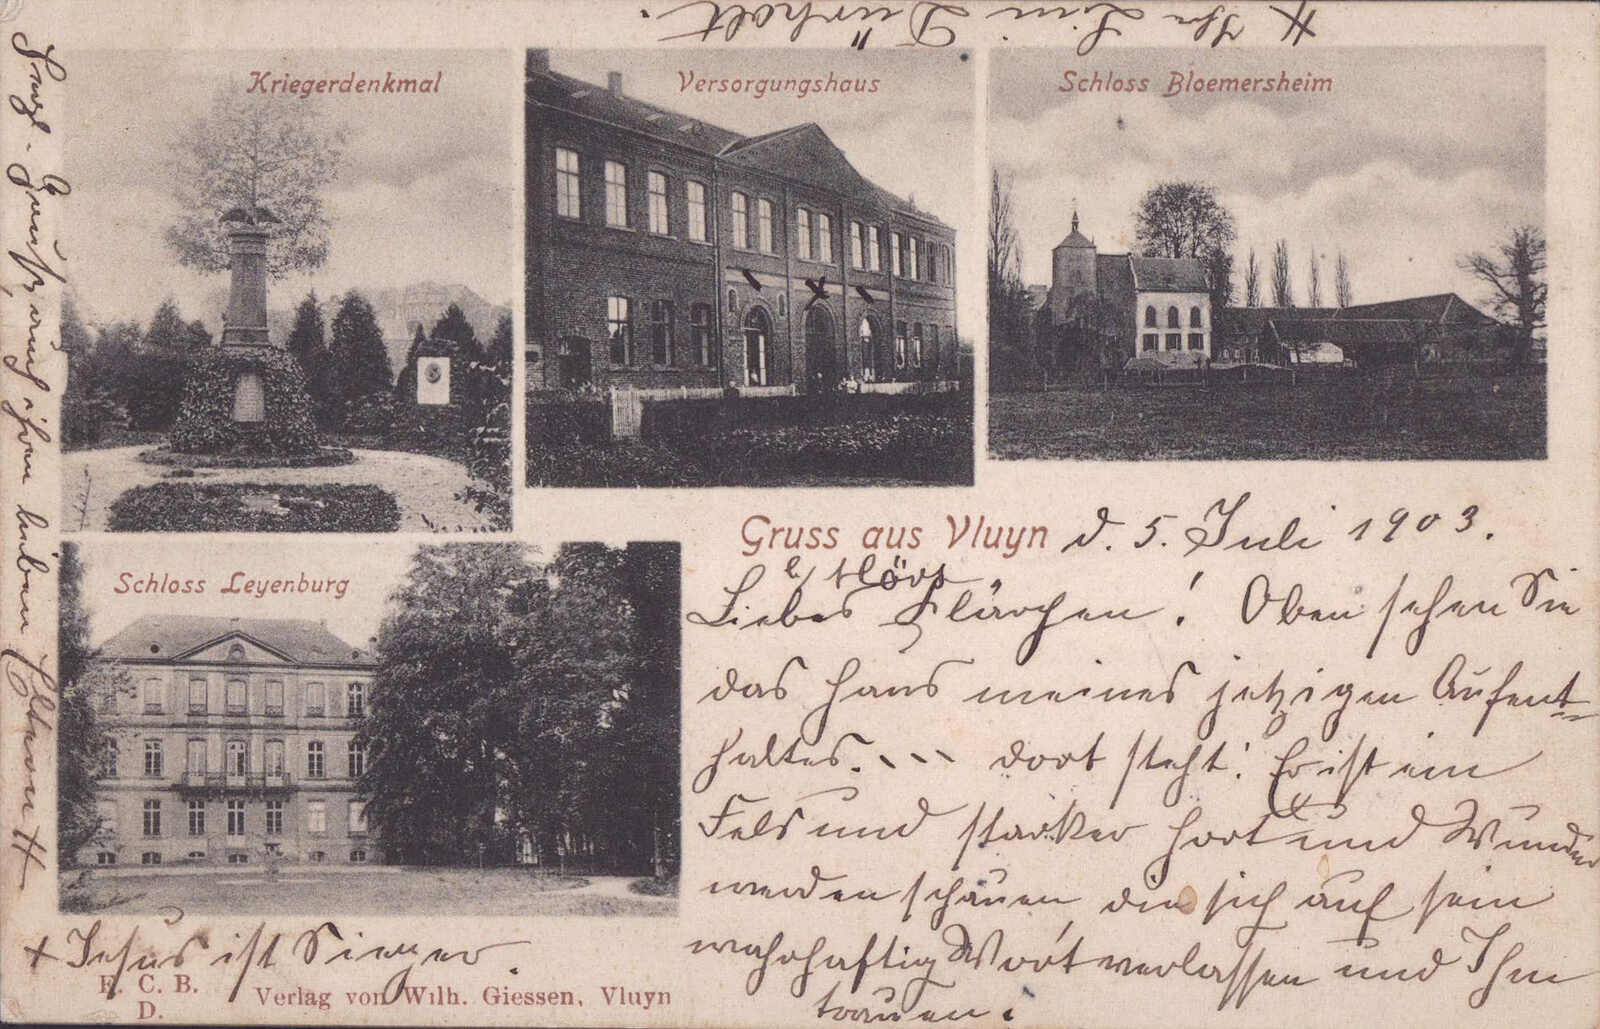 Ihr Lini Dürholt.
Kriegerdenkmal
Versorgungshaus
Schloss Bloemersheim
Schloss Leyenburg
Gruss aus Vluyn
d. 5. Juli 1903.
Liebes Klärchen! Oben sehen Sie
das Haus meines jetzigen Aufent-
haltes. dort steht: Er ist ein
Fels und starker Hort und Wunder
werden schauen die sich auf sein
wahrhaftig Wort verlassen und Ihm
trauen.
+ Jesus ist Sieger.
Herzl. Gruß, auch ihren lieben Eltern
E. C. B.
D.
Verlag von Wilh. Giessen, Vluyn